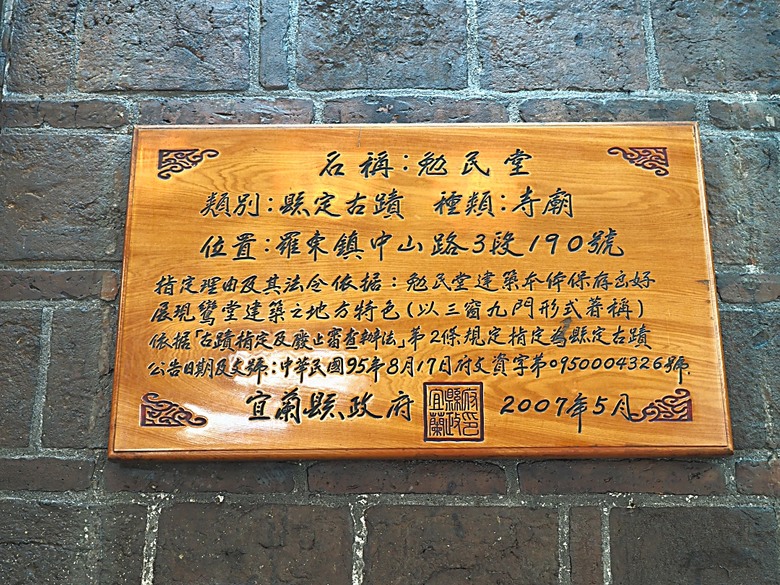 名稱：勉民堂
類別：縣定古蹟 種類：寺廟
位置：羅東鎮中山路3段190號
指定理由及其法令依据：勉民堂建築本体保存良好
展現鸞堂建築之地方特色(以三窗九門形式著稱)
依据「古蹟指定及廢止審查辦法」第2條規定指定為縣定古蹟
公告日期及文號：中華民國95年8月17日府文資字第0950004326號
宜蘭縣政府 宜蘭縣政府印 2007年5月